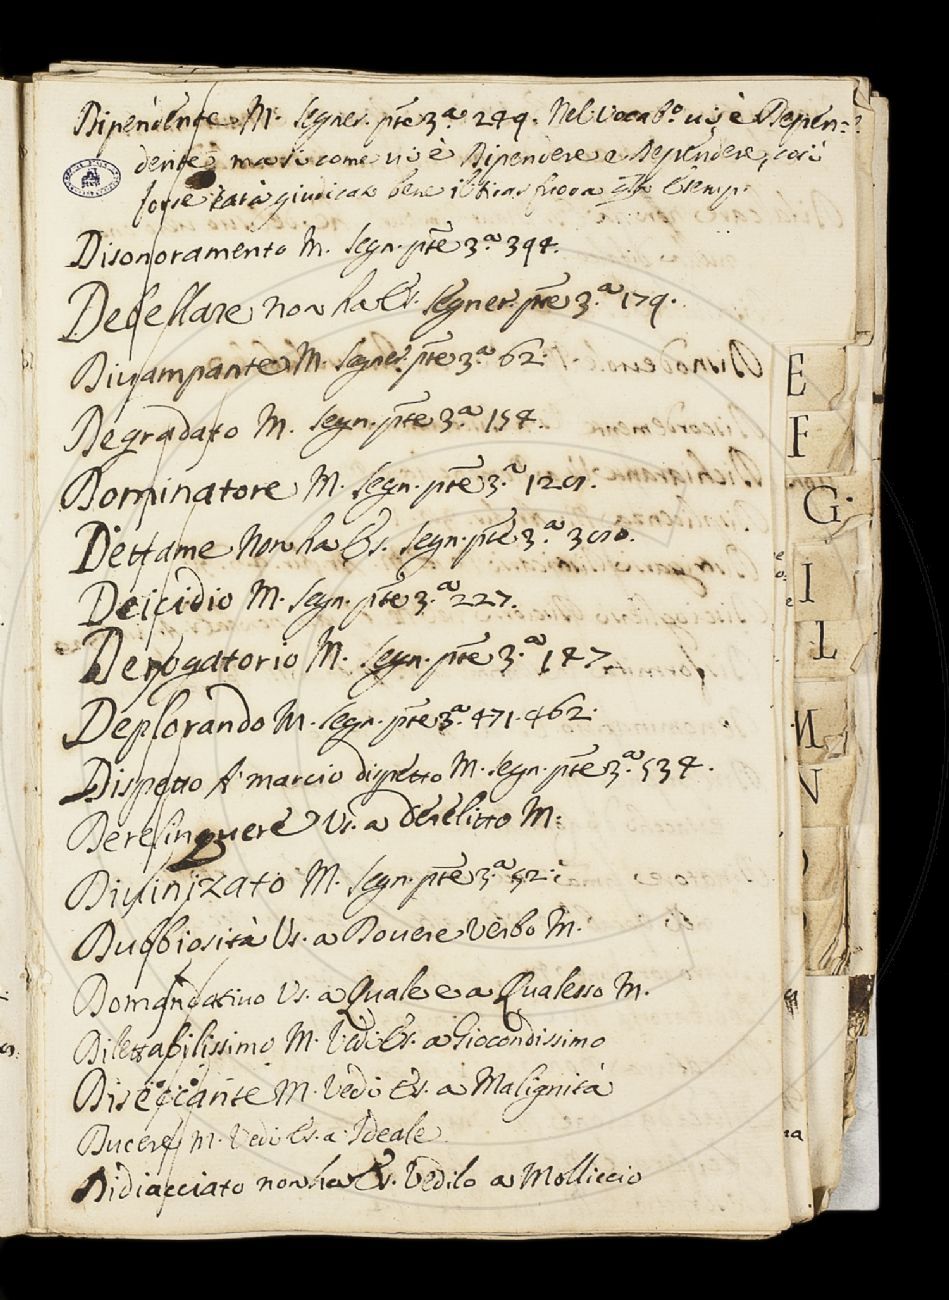 Dipendente M. Segner. pte 3.a 249. Nel Vocab.o ui è Depen=
dente, ma si come ui è Dipendere e Dependere, così
forse sarà giudicar bene il
Disonoramento M. Segn. pte 3.a 394.
Debellare non ha Es. Segner. pte 3.a 179.
Diuampante M. Segner. pte 3.a 62.
Degradato M. Segn. pte 3.a 154.
Dominatore M. Segn. pte 3.a
Dettame Non ha Es. Segn. pte 3.a
Deicidio M. Segn. pte 3.a 227.
Derogatorio M. Segn. pte 3.a 147
Deplorando M. Segn. pte 3.a 471. 462.
Dispetto A marcio dispetto M. Segn. pte 3.a 534.
Derelinquere Vs. a derelitto M.
Diuinizato M. Segn. pte 3.a 52.
Dubbiosità Vs. a Douere Verbo M.
Domandatiuo Vs. a Quale e a Qualesso M.
Dilettabilissimo M. Vedi Es. a Giocondissimo
Diseccante M. Vedi Es. a Malignità
Ducere M. Vedi Es. a Ideale
Didiacciato non ha Es. Vedilo a Molliccio
E
F
G
I
L
M
N